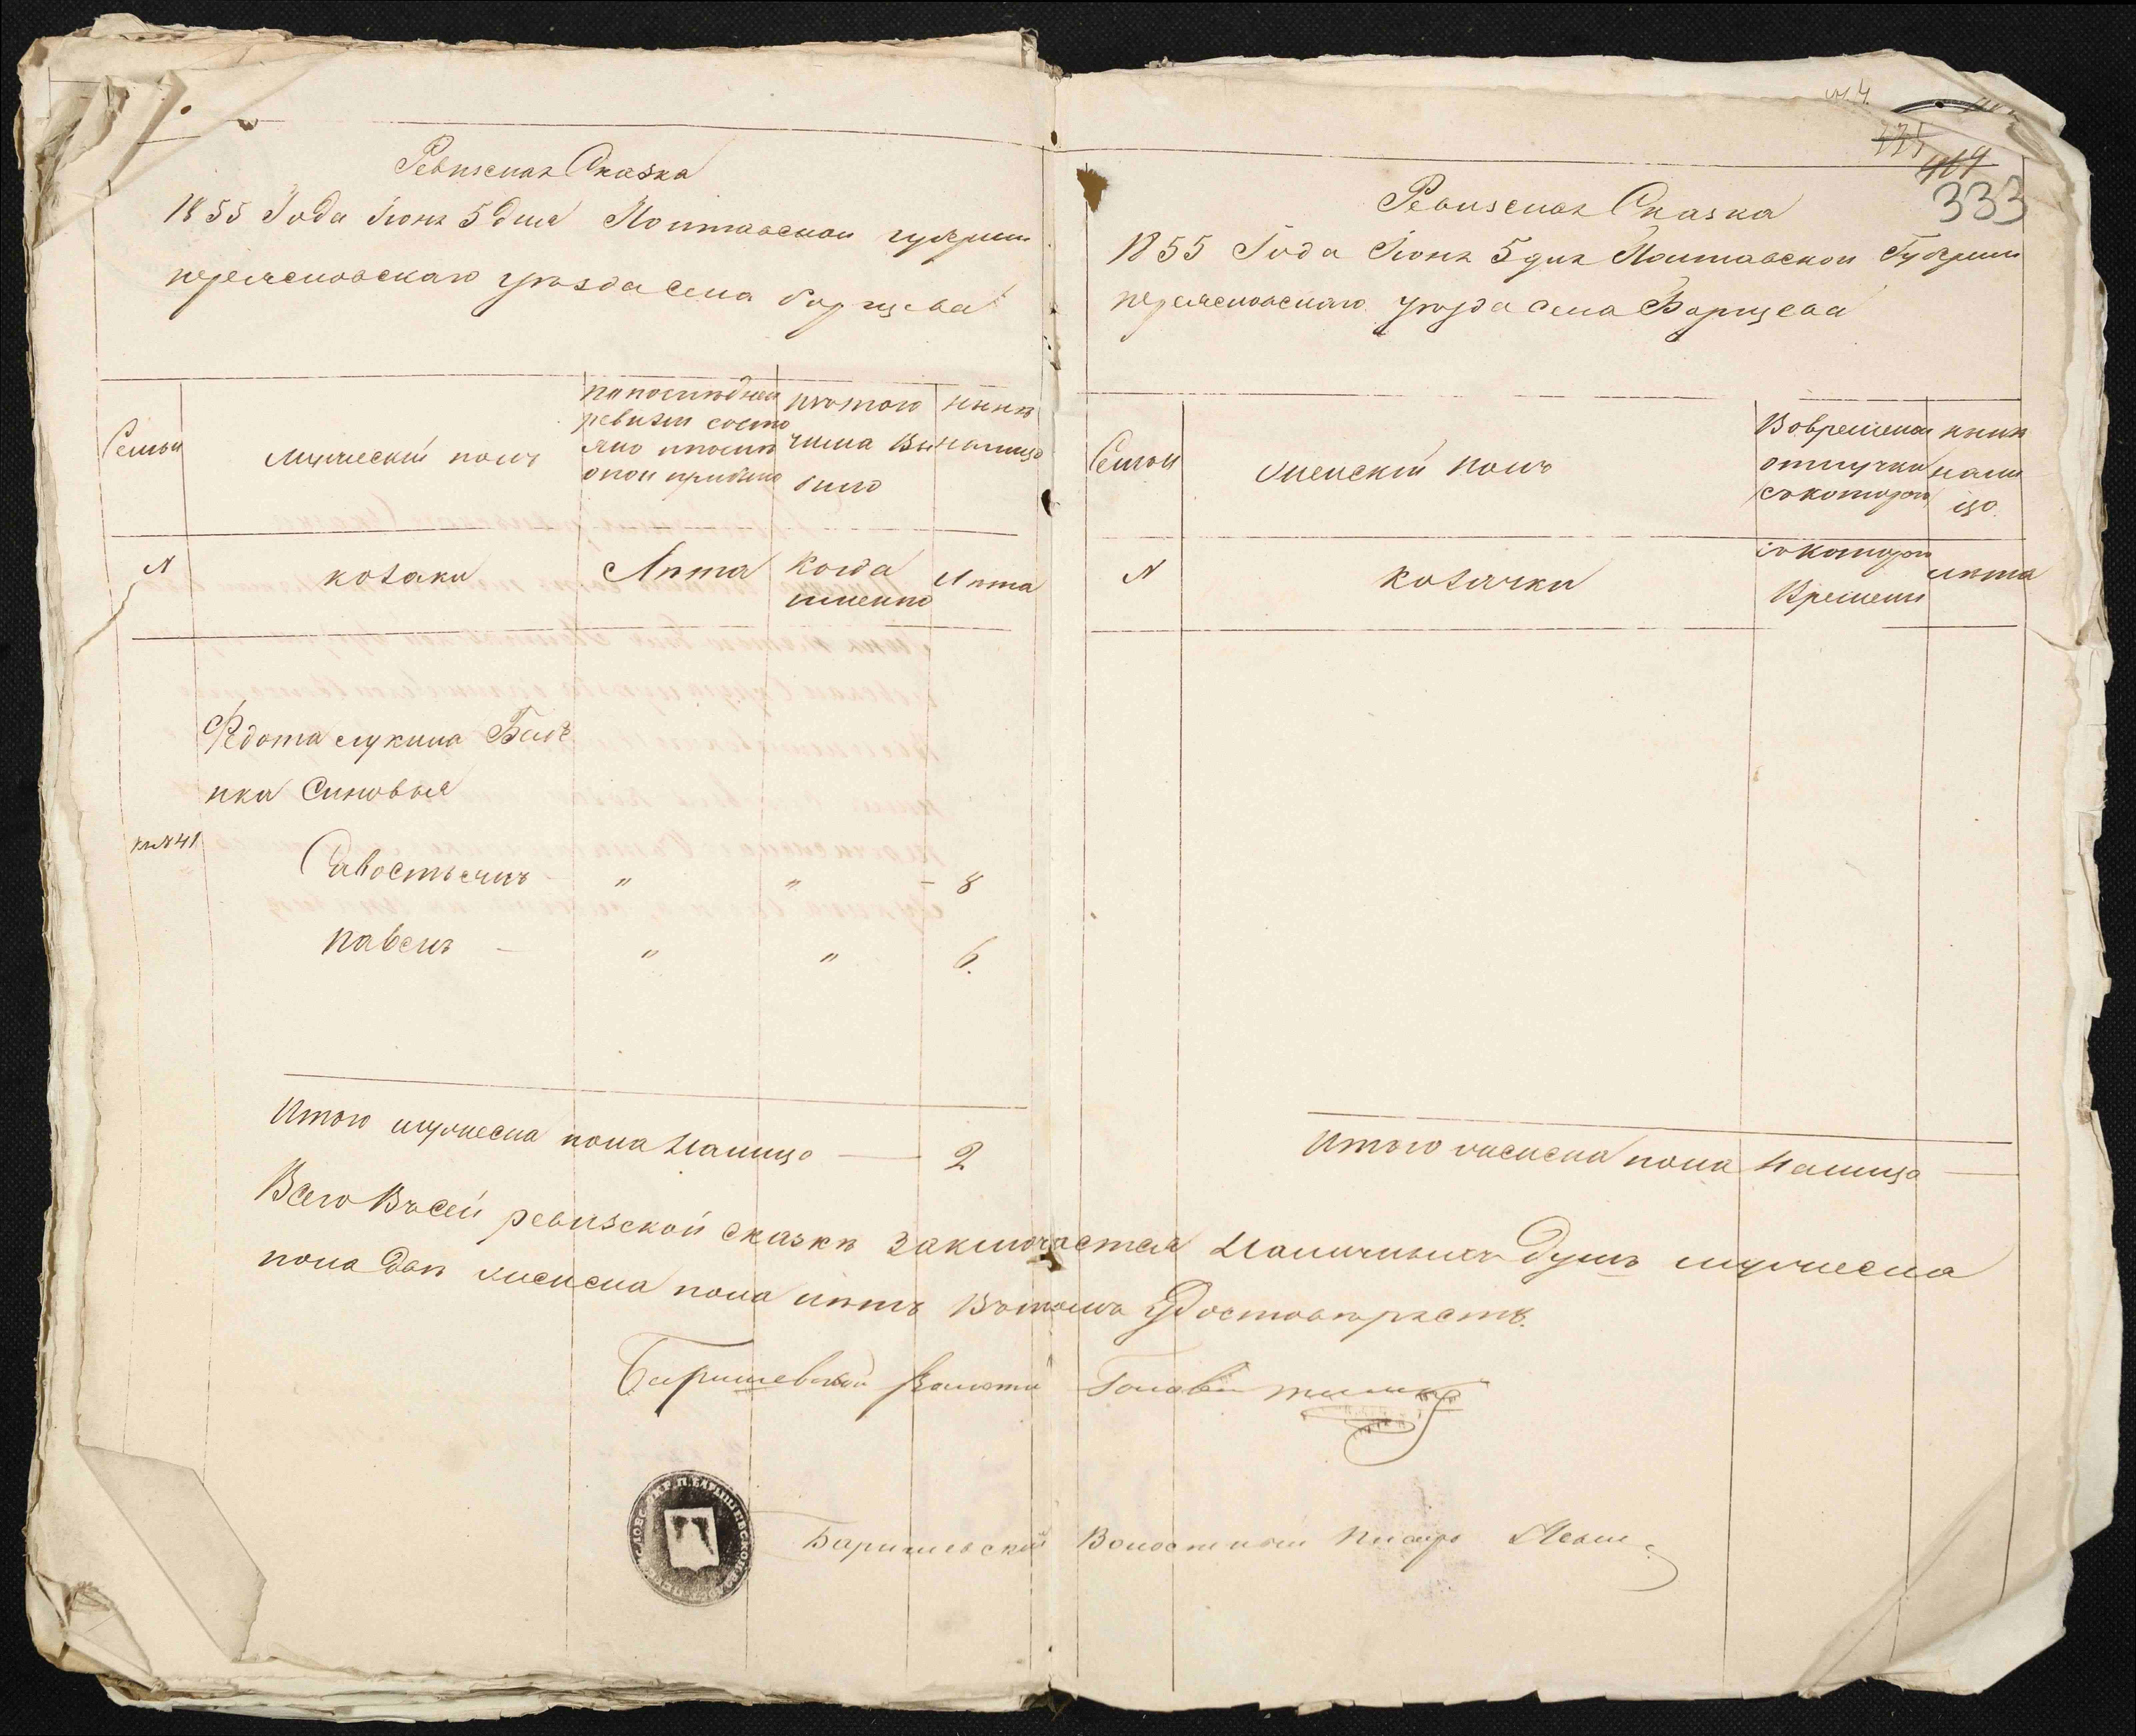 Ревизская Сказка
1855 Года Іюня 5 дня Полтавской губерніи
переясловскаго уѣзда села борщева
Семьи
мужеский полъ
по последней
ревизіи состо
яло и после
оной прибыло
изтого
числа вы
было
нынѣ
налицо
№
козаки
Лѣта
Когда
именно
Лѣта
Федота лукина Бал
ка Синовья
№ 41
Савостьянъ - " " - 8
павелъ - " " 6.
Итого мужеска пола налицо — 2
333
Ревизская Сказка
1855 Года Іюня 5 дня Полтавской Губерніи
переясловскаго уѣзда села Борщева
Семьи
женскій полъ
Вовременной
отлучки
съкоторого
нынѣ
нали
цо
№
козачки
съ которого
Времени
лѣта
Итого женска пола налицо —
Всего Въсей ревизской сказкѣ заключается наличныхъ душъ мужеска
пола двѣ женска пола нѣтъ Вътомъ удостовѣряетъ.
Баришевской Волости Голова
Баришевский Волостный Писарь